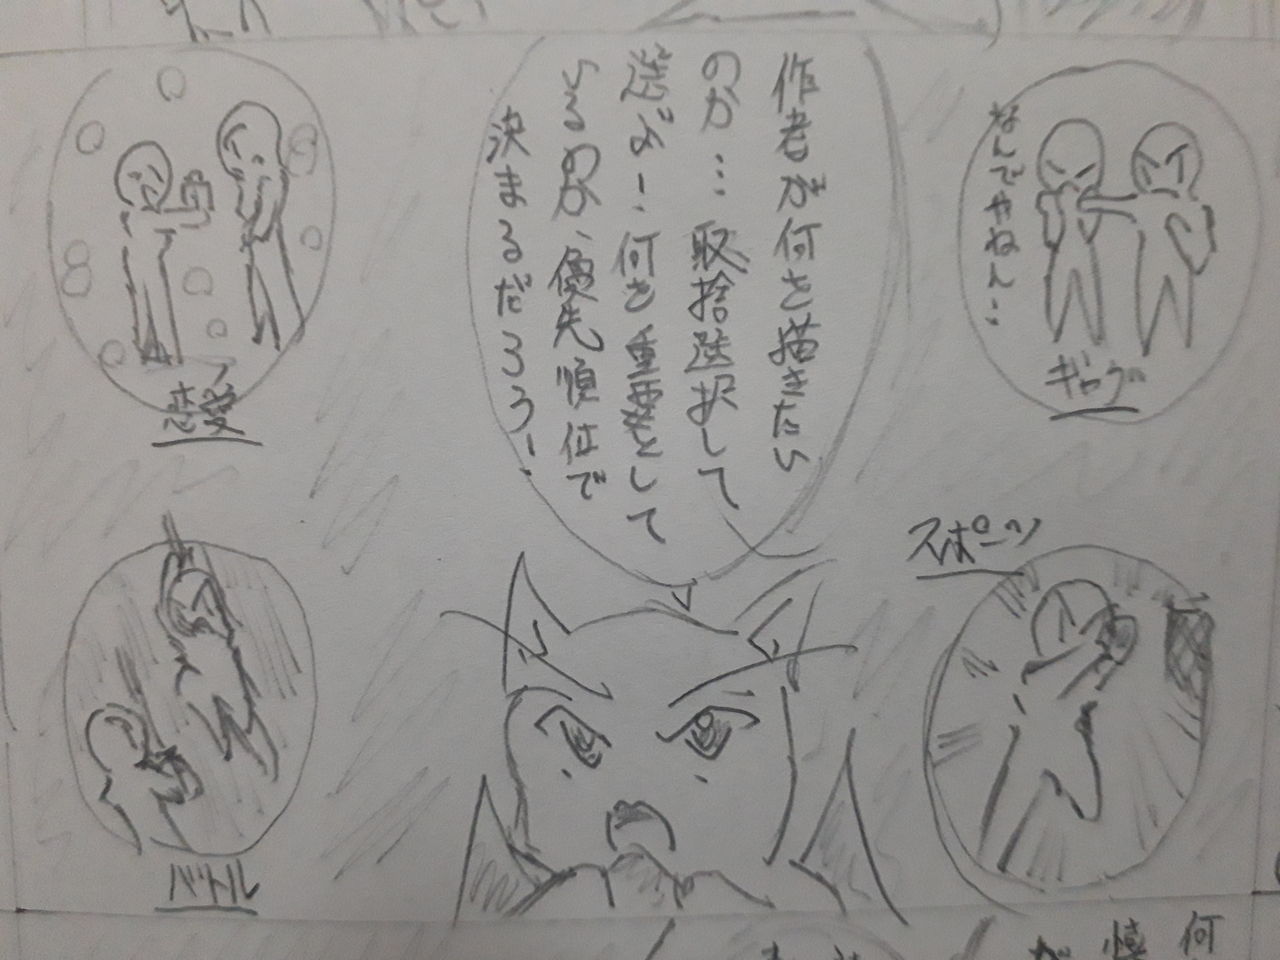 なんでやねん…
ギャグ
作者が何を描きたい
のか…取捨選択して
選ぶ!何を重要として
いるのか、優先順位で
決まるだろう!
恋愛
スポーツ
バトル
何